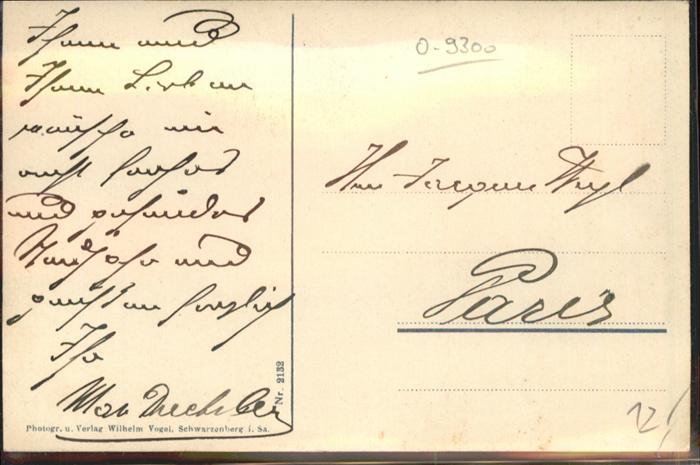 Ihnen und
Ihren Lieben
wünsche ein
recht frohes
und gesundes
Neujahr und
grüßt Sie herzlich
Ihr
Max
O-9300
Herrn Jacques Weyl
Paris
Nr. 2132
Photogr. u. Verlag Wilhelm Vogel, Schwarzenberg i. Sa.
12